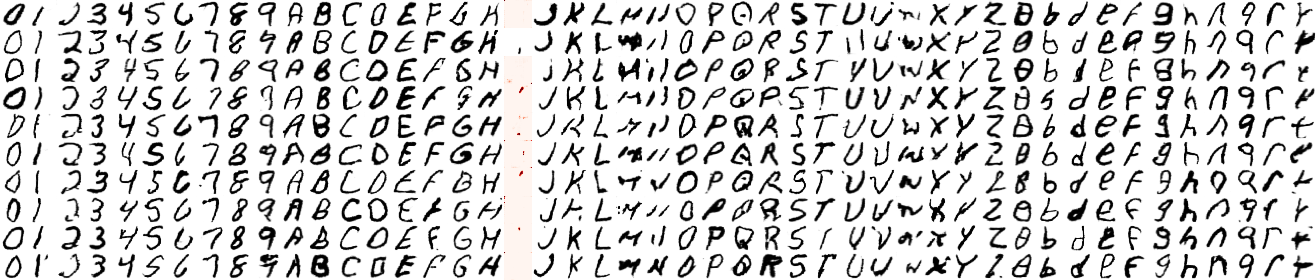 0 1 2 3 4 5 6 7 8 9 A B C D E F G H J K L M N O P Q R S T U V W X Y Z a b d e f g h n q r t
0 1 2 3 4 5 6 7 8 9 A B C D E F G H J K L M N O P Q R S T U V W X Y Z a b d e f g h n q r t
0 1 2 3 4 5 6 7 8 9 A B C D E F G H J K L M N O P Q R S T U V W X Y Z a b d e f g h n q r t
0 1 2 3 4 5 6 7 8 9 A B C D E F G H J K L M N O P Q R S T U V W X Y Z a b d e f g h n q r t
0 1 2 3 4 5 6 7 8 9 A B C D E F G H J K L M N O P Q R S T U V W X Y Z a b d e f g h n q r t
0 1 2 3 4 5 6 7 8 9 A B C D E F G H J K L M N O P Q R S T U V W X Y Z a b d e f g h n q r t
0 1 2 3 4 5 6 7 8 9 A B C D E F G H J K L M N O P Q R S T U V W X Y Z a b d e f g h n q r t
0 1 2 3 4 5 6 7 8 9 A B C D E F G H J K L M N O P Q R S T U V W X Y Z a b d e f g h n q r t
0 1 2 3 4 5 6 7 8 9 A B C D E F G H J K L M N O P Q R S T U V W X Y Z a b d e f g h n q r t
0 1 2 3 4 5 6 7 8 9 A B C D E F G H J K L M N O P Q R S T U V W X Y Z a b d e f g h n q r t